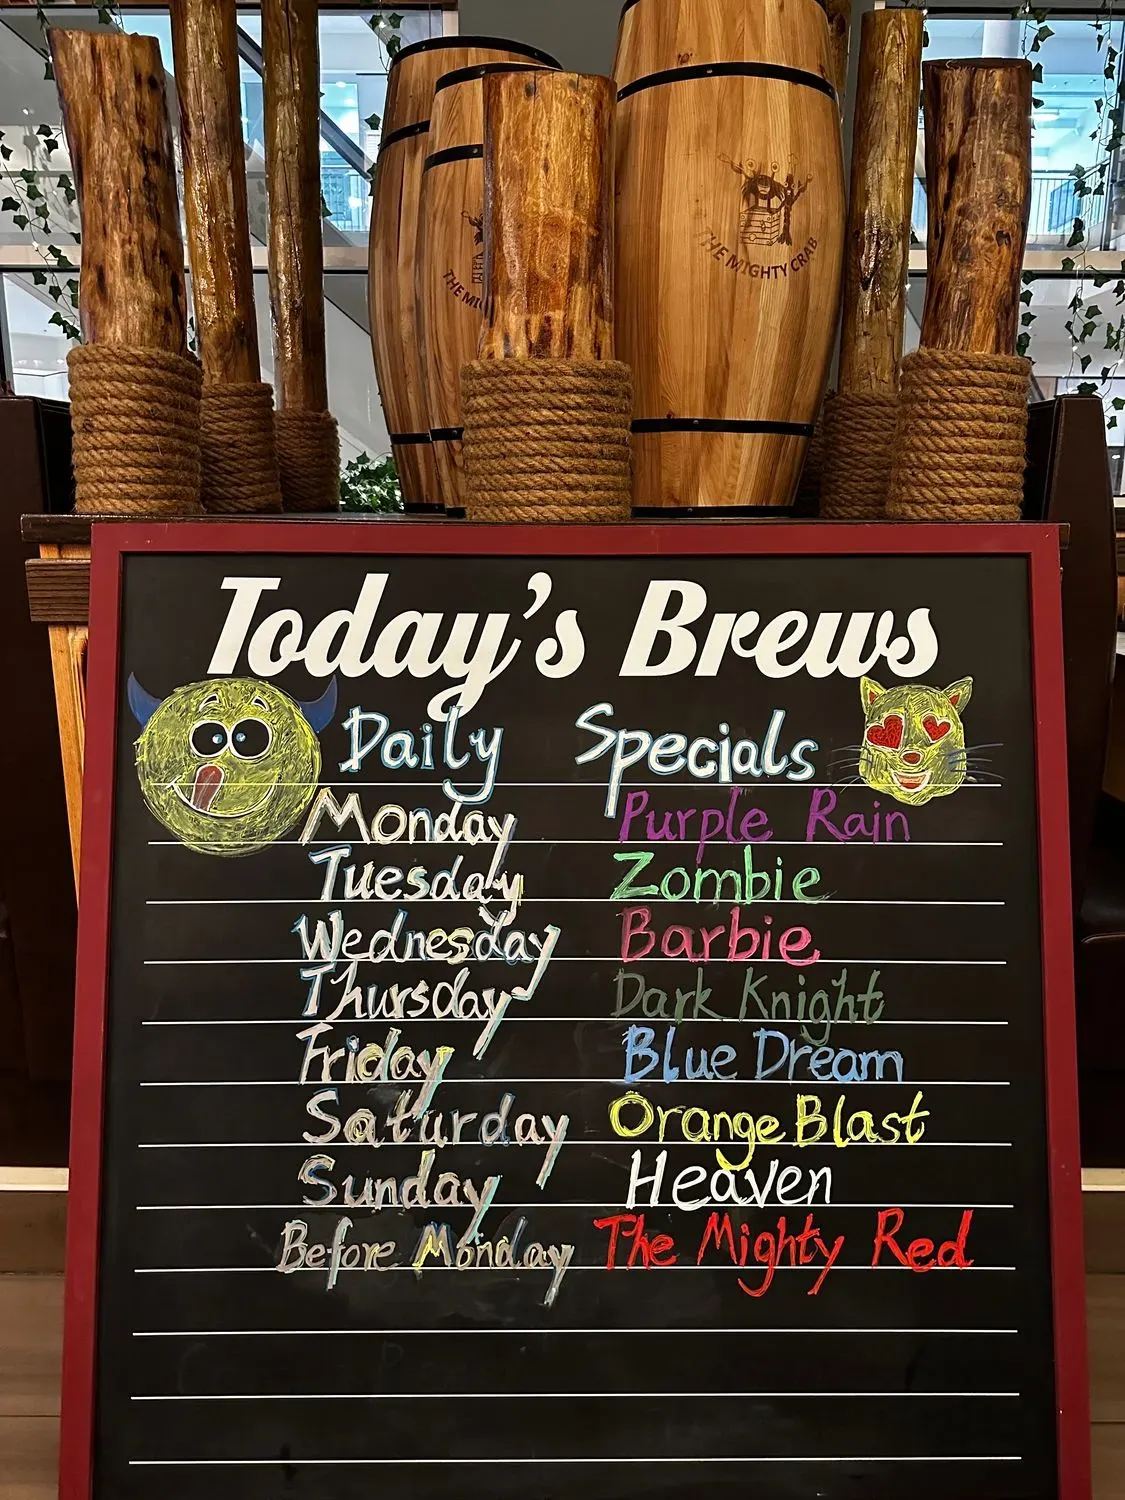 THE MIGHTY CRAB
THE MI
Today's Brews
Daily Specials
Monday Purple Rain
Tuesday Zombie
Wednesday Barbie
Thursday Dark Knight
Friday Blue Dream
Saturday Orange Blast
Sunday Heaven
Before Monday The Mighty Red